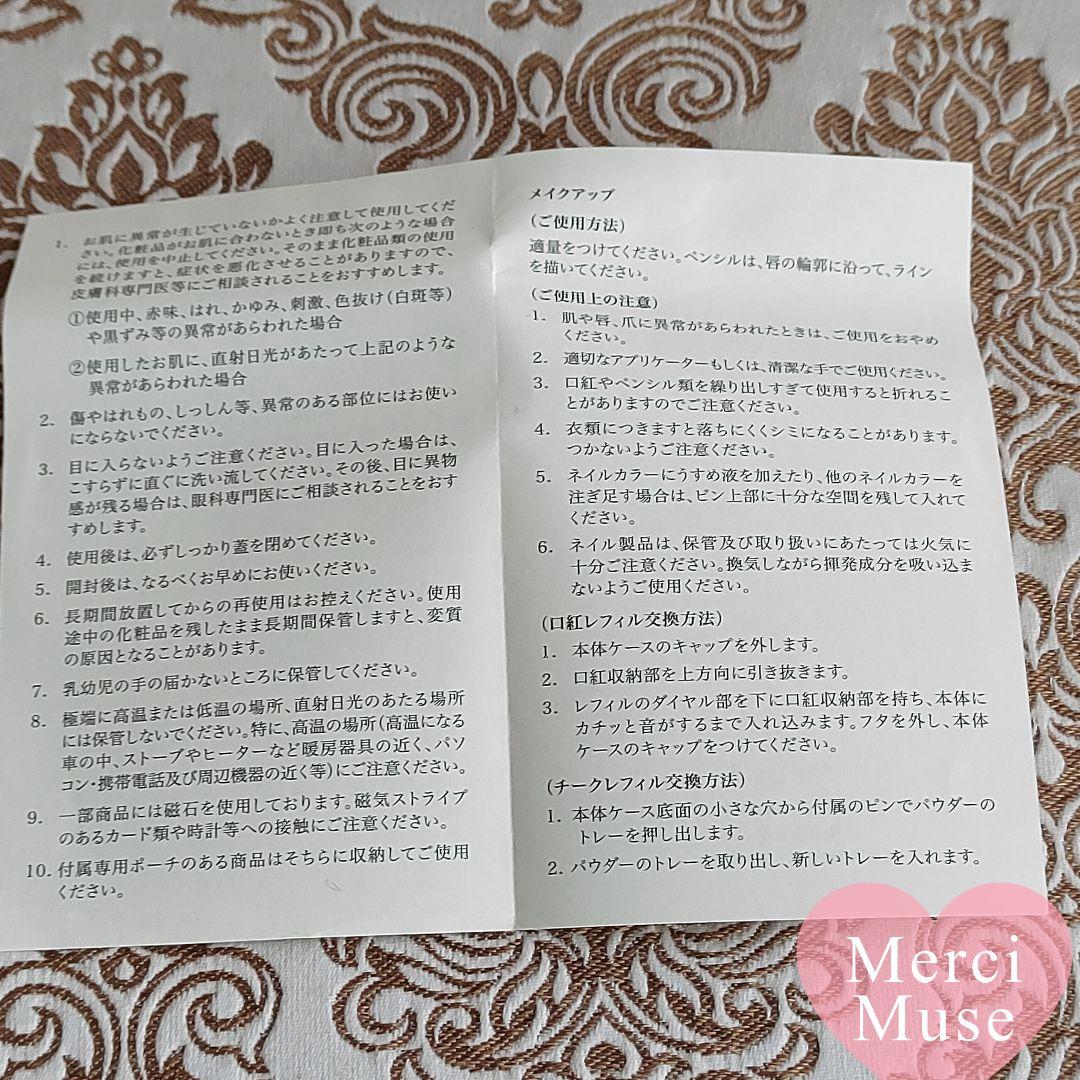 1. お肌に異常が生じていないかよく注意して使用してくだ
さい。化粧品がお肌に合わないとき即ち次のような場合
には、使用を中止してください。そのまま化粧品類の使用
を続けますと、症状を悪化させることがありますので、
皮膚科専門医等にご相談されることをおすすめします。
①使用中、赤味、はれ、かゆみ、刺激、色抜け(白斑等)
や黒ずみ等の異常があらわれた場合
②使用したお肌に、直射日光があたって上記のような
異常があらわれた場合
2. 傷やはれもの、しっしん等、異常のある部位にはお使い
にならないでください。
3. 目に入らないようご注意ください。目に入った場合は、
こすらずに直ぐに洗い流してください。その後、目に異物
感が残る場合は、眼科専門医にご相談されることをおす
すめします。
4. 使用後は、必ずしっかり蓋を閉めてください。
5. 開封後は、なるべくお早めにお使いください。
6. 長期間放置してからの再使用はお控えください。使用
途中の化粧品を残したまま長期間保管しますと、変質
の原因となることがあります。
7. 乳幼児の手の届かないところに保管してください。
8. 極端に高温または低温の場所、直射日光のあたる場所
には保管しないでください。特に、高温の場所(高温になる
車の中、ストーブやヒーターなど暖房器具の近く、パソ
コン・携帯電話及び周辺機器の近く等)にご注意ください。
9. 一部商品には磁石を使用しております。磁気ストライプ
のあるカード類や時計等への接触にご注意ください。
10. 付属専用ポーチのある商品はそちらに収納してご使用
ください。
メイクアップ
(ご使用方法)
適量をつけてください。ペンシルは、唇の輪郭に沿って、ライン
を描いてください。
(ご使用上の注意)
1. 肌や唇、爪に異常があらわれたときは、ご使用をおやめ
ください。
2. 適切なアプリケーターもしくは、清潔な手でご使用ください。
3. 口紅やペンシル類を繰り出しすぎて使用すると折れるこ
とがありますのでご注意ください。
4. 衣類につきますと落ちにくくシミになることがあります。
つかないようご注意ください。
5. ネイルカラーにうすめ液を加えたり、他のネイルカラーを
注ぎ足す場合は、ビン上部に十分な空間を残して入れて
ください。
6. ネイル製品は、保管及び取り扱いにあたっては火気に
十分ご注意ください。換気しながら揮発成分を吸い込ま
ないようご使用ください。
(口紅レフィル交換方法)
1. 本体ケースのキャップを外します。
2. 口紅収納部を上方向に引き抜きます。
3. レフィルのダイヤル部を下に口紅収納部を持ち、本体に
カチッと音がするまで入れ込みます。フタを外し、本体
ケースのキャップをつけてください。
(チークレフィル交換方法)
1. 本体ケース底面の小さな穴から付属のピンでパウダーの
トレーを押し出します。
2. パウダーのトレーを取り出し、新しいトレーを入れます。
Merci
Muse